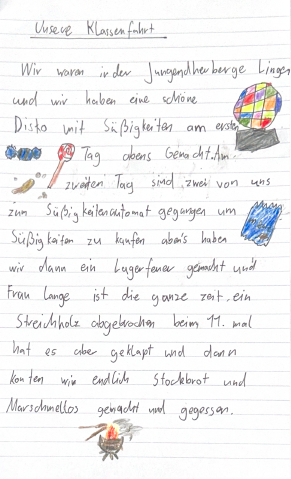 Unsere Klassenfahrt
Wir waren in der Jungendherberge Lingen
und wir haben eine schöne
Disko mit Süßigkeiten am ersten
Tag abens Gemacht. Am
zweiten Tag sind zwei von uns
zum Süßigkeitenautomat gegangen um
Süßigkeiten zu kaufen abens haben
wir dann ein Lagerfeuer gemacht und
Frau Lange ist die ganze zeit ein
Streichholz abgebrochen beim 11. mal
hat es aber geklapt und dann
konten wir endlich Stockbrot und
Marschmellos gemacht und gegessen.